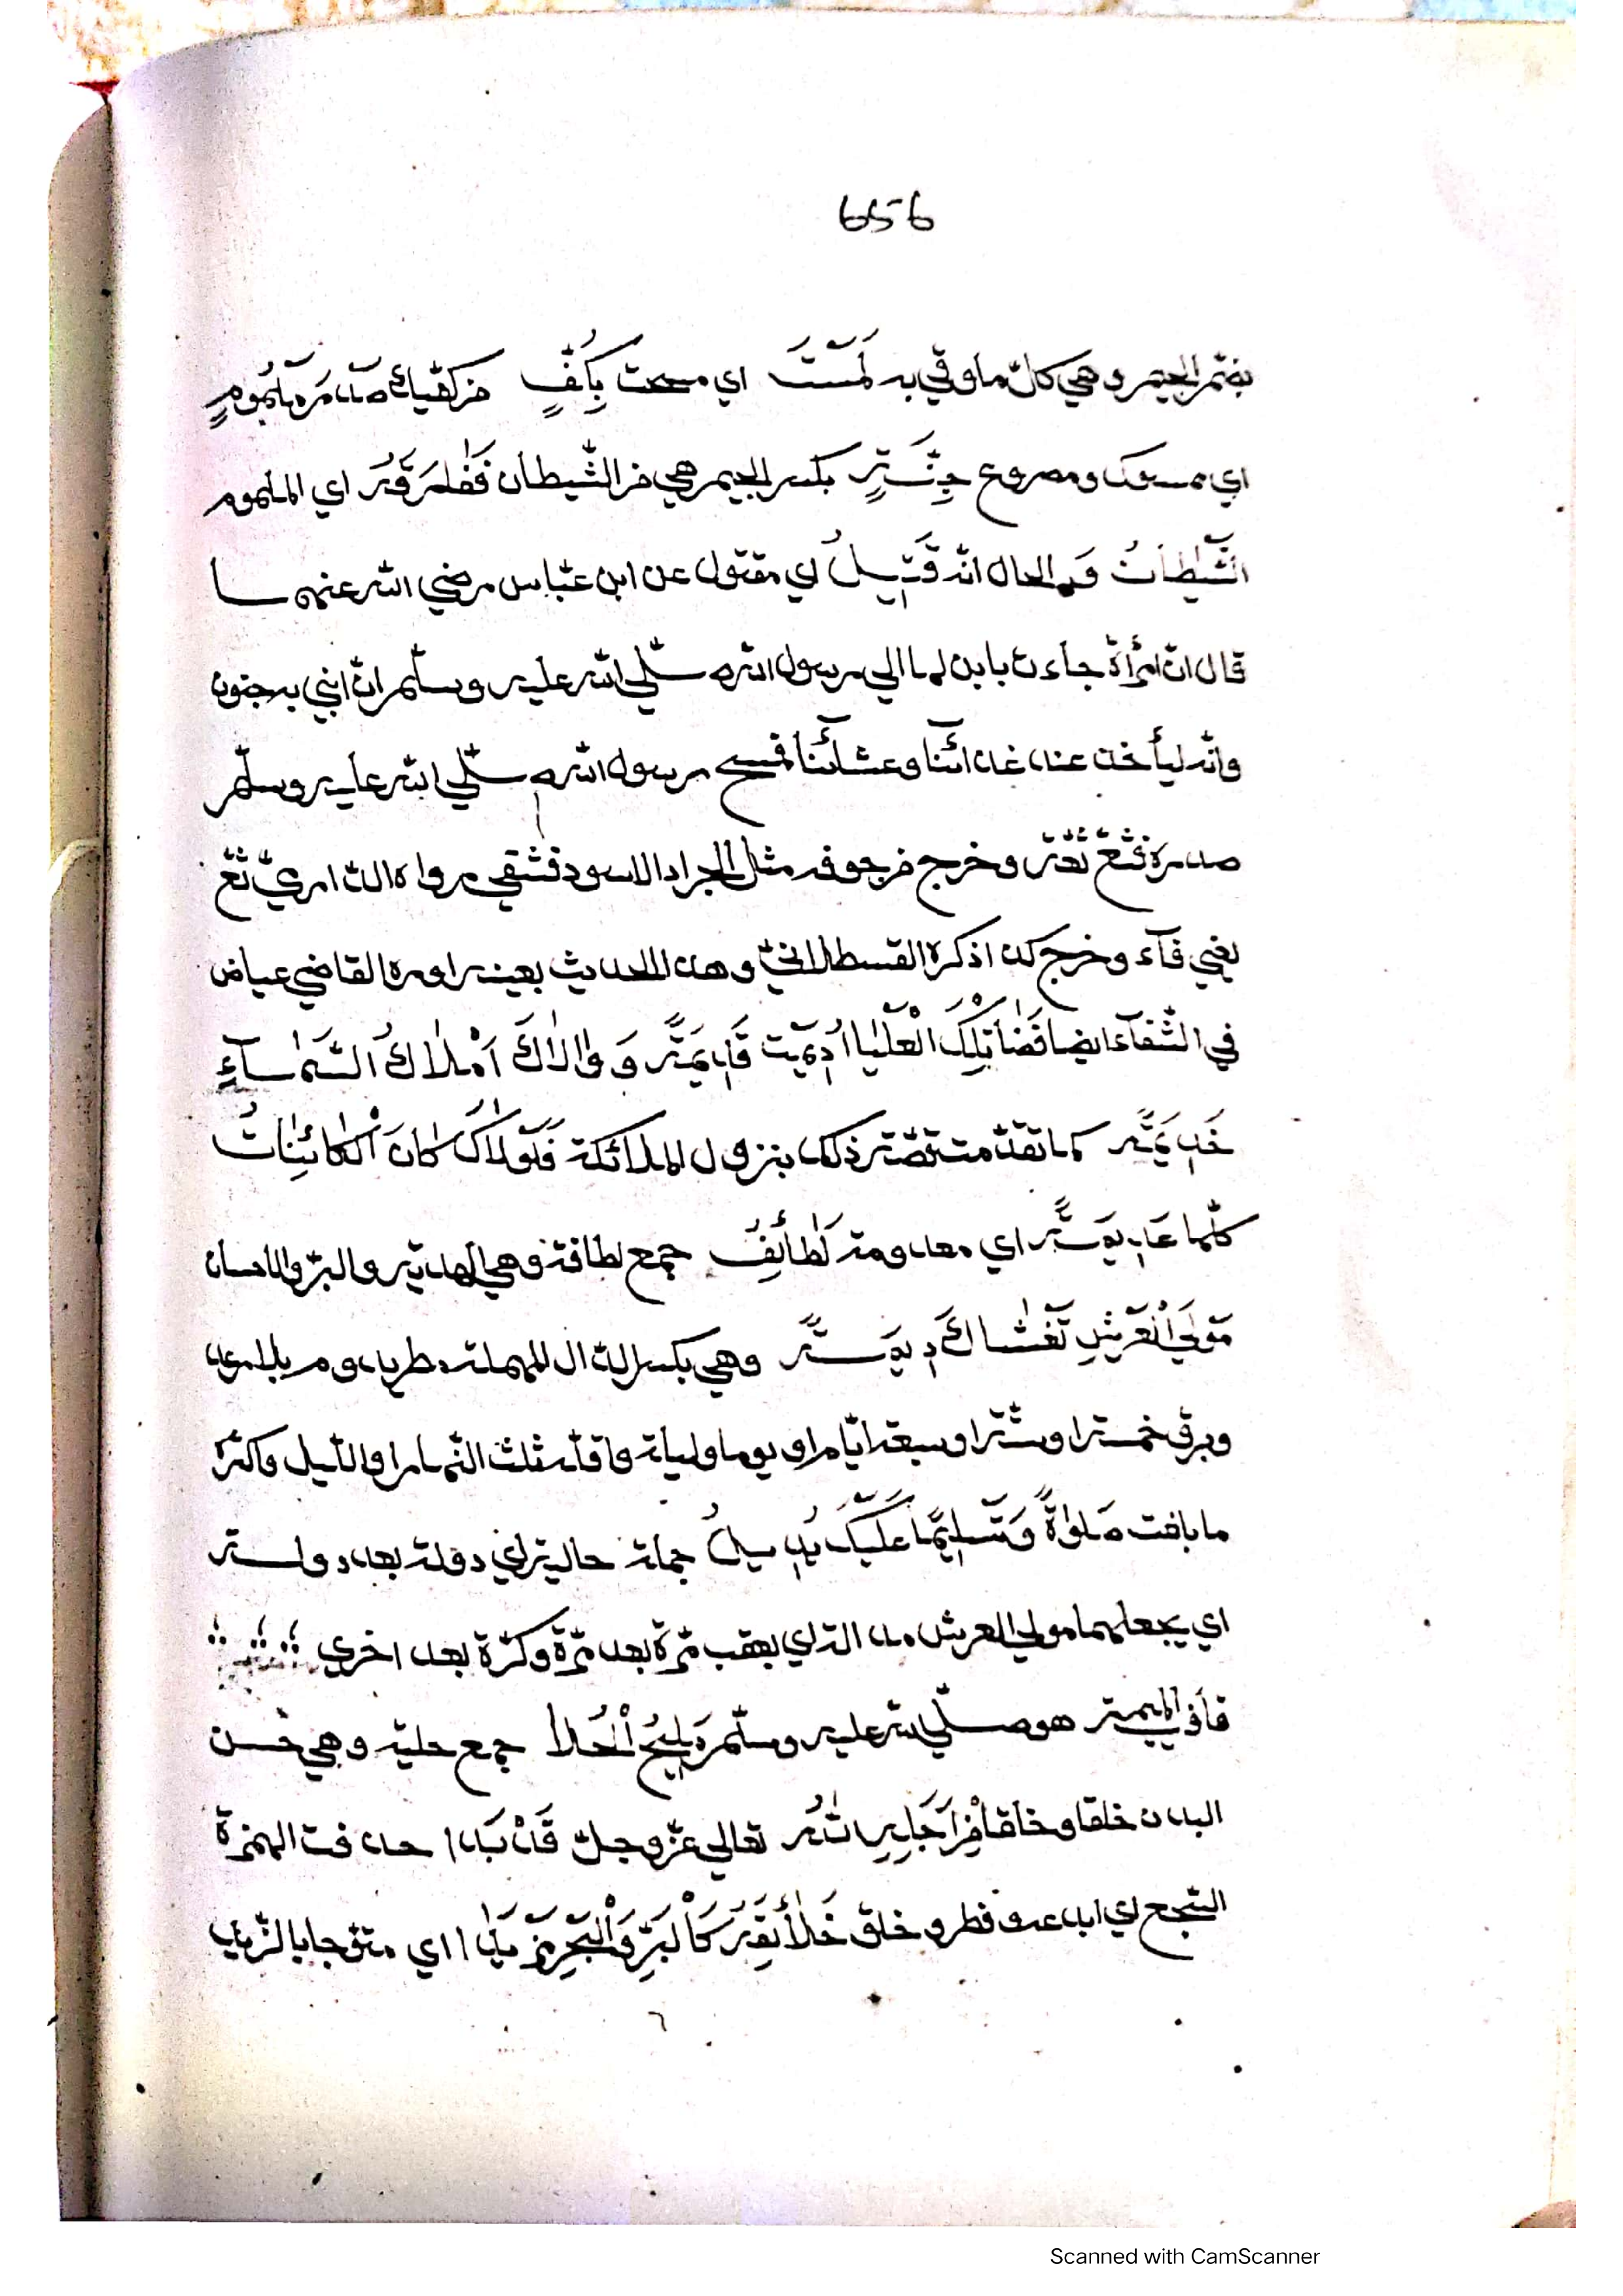 656
بضمّ الجيم وهي كلّ ما وقي به لَمَسْتَ اي مسحت بِكَفٍّ من كفّيك صدره مَلْمُومٍ
اي ممسوك ومصروع جِنَّةٍ بكسر الجيم هي من الشيطان فَفَرَّ اي الملموم
الشَّيْطَانُ قد الحال انه قَتِيلُ اي مقتول عن ابن عبّاس رضي الله عنهما
قال انّ امرأة جاءت بابن لها الي رسول الله صلّي الله عليه وسلّم انّ ابني به جنون
وانّه ليأخذه عند غدائنا وعشائنا فمسح رسول الله صلّي الله عليه وسلّم
صدره فثعّ ثعّة وخرج من جوفه مثل الجراد الاسود فشفي رواه الدّارمي ثعّ
يعني قآء وخرج كذا ذكره القسطلاني وهذا الحديث بعينه اورده القاضي عياض
في الشّفآء ايضا تِلْكَ الْعُلْيَا وَوَالَاكَ اَمْلَاكُ السَّمَآءِ
كما تقدّمت قصّة ذلك بنزول الملائكة فَلَوْلَاكَ كَانَ الْكَائِنَاتُ
كلّها اي معدومة لَطَائِفُ جمع لطافة وهي الهديّة والبرّ والاحسان
مَوْلَي الْعَرْشِ تَغْشَاكَ دِيمَةً وهي بكسر الدّال المهملة مطر يدوم بلا رعد
وبرق خمسة او ستّة او سبعة ايّام او يوما وليلة واقلّه ثلث النّهار او اللّيل واكثره
ما بلغت صَلٰوةً وَتَسْلِيمًا عَلَيْكَ جملة حالية اي دولة بعد دولة
اي يجعلهما مولي العرش يعقب مرّة بعد مرّة وكرّة بعد اخري
هو صلّي الله عليه وسلّم مَلِيحُ الْحُلَا جمع حلية وهي حسن
البدن خلقا وخلقا تعالي عزّ وجلّ قَدْ بَدَا حذفت الهمزة
للسّجع اي ابدع وفطر وخلق خَلَائِقَهُ كَالْبَرِّ وَالْبَحْرِ مُزْبِدًا اي متموّجا بالزّبد